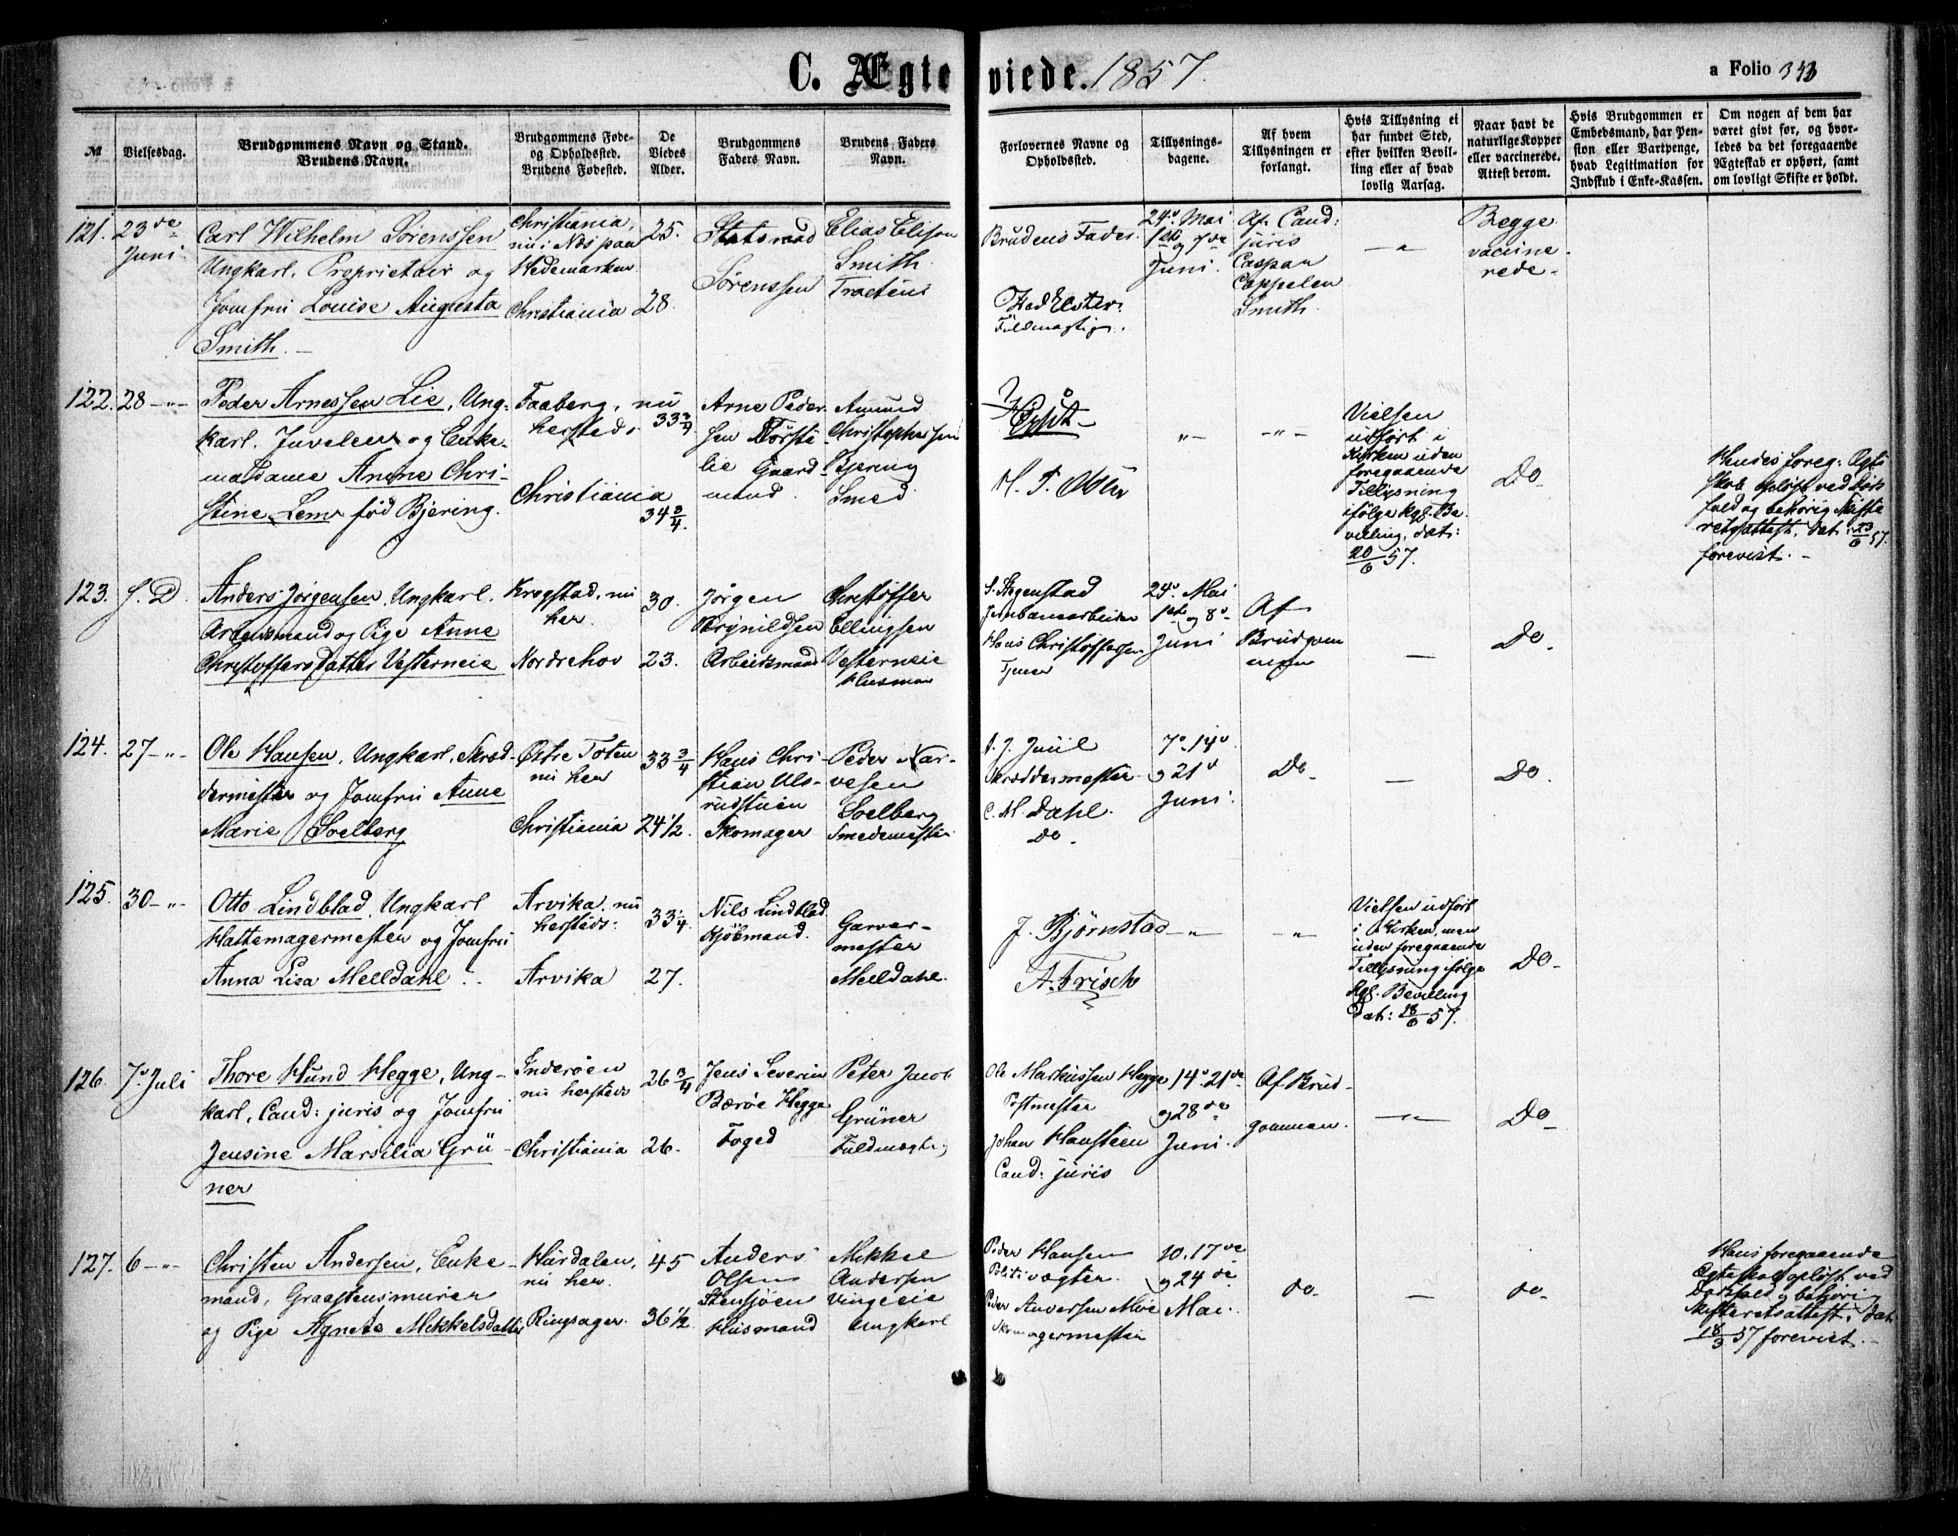 C. Ægteviede. 1857.
a Folio 343
№
Vielsesdag.
Brudgommens Navn og Stand.
Brudens Navn.
Brudgommens Føde-
og Opholdssted.
Brudens Fødested.
De
Viedes
Alder.
Brudgommens
Faders Navn.
Brudens Faders
Navn.
Forlovernes Navne og
Opholdssted.
Tillysnings-
dagene.
Af hvem
Tillysningen er
forlangt.
Hvis Tillysning ei
har fundet Sted,
efter hvilken Bevil-
ling eller af hvad
lovlig Aarsag.
Naar havt de
naturlige Kopper
eller vaccinerede.
Attest derom.
Hvis Brudgommen er
Embedsmand, har Pen-
sion eller Vartpenge,
hvad Legitimation for
Indskud i Enke-Kassen.
Om nogen af dem har
været givt før, og hvor-
ledes da det foregaaende
Ægteskab er ophørt, samt
om lovligt Skifte er holdt.
121.
23de
Juni
Carl Wilhelm Sörenssen
Ungkarl, Proprietair og
Jomfru Louise Augusta
Smith. —
Christiania,
nu i Næs paa
Hedemarken
Christiania
25.
28
Statsraad
Sörenssen
Elias Elison
Smith
Bruden Fader
Fuldmægtig.
24. Mai
1ste og 7de
Juni.
Af Cand:
juris
Caspar
Cappelen
Smith.
— " —
Begge
vaccine-
rede.
122.
28 — " —
Peder Arnessen Lie, Ung-
karl, Juveleer og Enke-
madame Anne Chri-
stine Lem født Bjering.
Faaberg, nu
hersteds
Christiania
33 3/4
34 3/4
Arne Peder-
sen
lie Gaard-
mand.
Amund
Christophersen
Bjering
Smed
— " —
— " —
Vielsen
udført i
Kirken uden
foregaaende
Tillysning
ifølge Kgl. Be-
villing, dat:
20/6 57.
Do
Hendes foreg: Ægte
skab opløst ved Døds
fald og behørig Skifte
retsattest, dat: 23/6 57.
forevist. —
123.
S. D.
Anders Jörgensen, Ungkarl.
Arbeidsmand og Pige Anne
Christoffersdatter Vesterneie
Krogstad, nu
her.
Norderhov
30.
23.
Jörgen
Brynildsen
Arbeidsmand
Christoffer
Ellingsen
Vesterneie
Husman
Jernbanearbeider
Hans Christoffersen
Tjener
24. Mai
1ste og 8.
Juni
Af
Brudgom
men
—
Do.
124.
27 — " —
Ole Hansen, Ungkarl, Skræd-
dermester og Jomfru Anne
Marie Soelberg
Østre Toten
nu her
Christiania
33 3/4
24 1/2.
Hans Chri-
stian Uls-
rudstuen
Skomager
Peder Nar-
vesen
Soelberg
Smedemester
A. J. Juul
Skræddermester
C. M. Dahl.
Do.
7. 14.
og 21.
Juni.
Do.
—
Do.
125.
30 — " —
Otto Lindblad, Ungkarl
Hattemagermester og Jomfru
Anna Lisa Melldahl.
Arvika, nu
hersteds:
Arvika
33 1/4
27.
Nils Lindblad
Kjøbmand.
Garver-
mester
Melldahl.
J. Björnstad
A. Frisch
— " —
— " —
Vielsen udført
i Kirken, men
uden foregaaende
Tillysning ifølge
Kgl. Bevilling
dat: 18/6 57.
Do.
126.
7. Juli
Thore Hund Hegge, Ung-
karl, Cand: juris og Jomfru
Jensine Marsilia Grü-
ner
Inderøen
nu hersteds
Christiania
26 3/4
26.
Jens Severin
Bærøe Hegge
Foged
Peter Jacob
Grüner
Fuldmægtig
Ole Markussen Hegge
Postmester
Johan Hansteen
Cand: juris
14. 21de
og 28de
Juni.
Af Brud-
gommen.
— " —
Do.
127.
6 — " —
Christen Andersen, Enke-
mand, Graastensmurer
og Pige Agnete Mikkelsdatter
Hurdalen,
nu her.
Ringsager.
45
36 1/2
Anders
Olsen
Stensjöen
Husmand
Mikkel
Andersen
Vingeeie
Ungkarl
Peder Hansen
Politivægter.
Peder Andersen Moe
Skomagermester
10. 17de
og 24de
Mai.
do.
—
do.
Hans foregaaende
Ægteskab opløst ved
Dødsfald og behørig
Skifteretsattest, dat
18/3 57 forevist. —